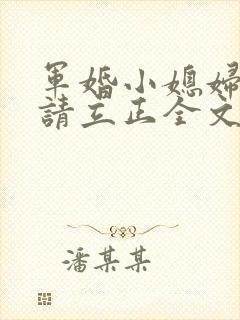 軍婚小媳婦
請立正全文
潘某某